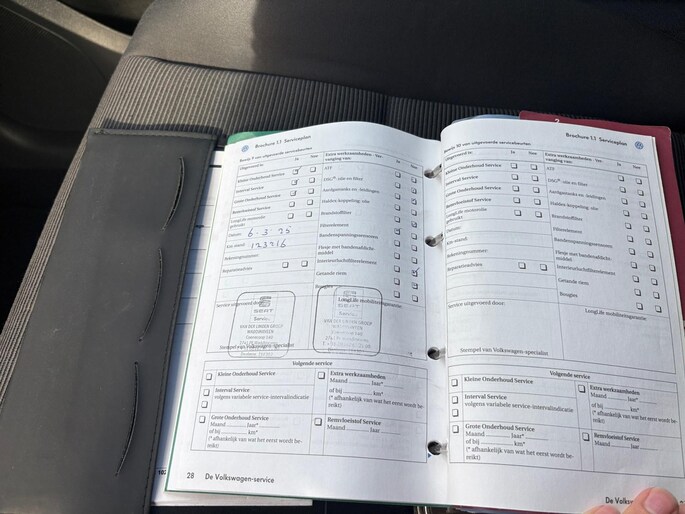 Brochure 1.1 Serviceplan
Bewijs 9 van uitgevoerde servicebeurten
Uitgevoerd is:
Ja
Nee
Kleine Onderhoud Service
Interval Service
Grote Onderhoud Service
Remvloeistof Service
LongLife motorolie
gebruikt
Datum: 6-3-25
Km-stand: 123216
Rekeningnummer:
Reparatieadvies
Extra werkzaamheden - Ver-
vanging van:
Ja
Nee
ATF
DSG®-olie en filter
Aardgastanks en -leidingen
Haldex-koppeling: olie
Brandstoffilter
Filterelement
Bandenspanningssensoren
Flesje met bandenafdicht-
middel
Interieurluchtfilterelement
Getande riem
Bougies
Service uitgevoerd door:
LongLife mobiliteitsgarantie:
SEAT
Service
VAN DER LINDEN GROEP
SEAT
Service
VAN DER LINDEN GROEP
Stempel van Volkswagen-specialist
Volgende service
Kleine Onderhoud Service
Interval Service
volgens variabele service-intervalindicatie
Grote Onderhoud Service
Maand ............ jaar* ............
of bij ............ km*
(* afhankelijk van wat het eerst wordt be-
reikt)
Extra werkzaamheden
Maand ............ jaar* ............
of bij ............ km*
(* afhankelijk van wat het eerst wordt be-
reikt)
Remvloeistof Service
Maand ............ jaar ............
28
De Volkswagen-service
2
Brochure 1.1 Serviceplan
Bewijs 10 van uitgevoerde servicebeurten
Uitgevoerd is:
Ja
Nee
Kleine Onderhoud Service
Interval Service
Grote Onderhoud Service
Remvloeistof Service
LongLife motorolie
gebruikt
Datum:
Km-stand:
Rekeningnummer:
Reparatieadvies
Extra werkzaamheden - Ver-
vanging van:
Ja
Nee
ATF
DSG®-olie en filter
Aardgastanks en -leidingen
Haldex-koppeling: olie
Brandstoffilter
Filterelement
Bandenspanningssensoren
Flesje met bandenafdicht-
middel
Interieurluchtfilterelement
Getande riem
Bougies
Service uitgevoerd door:
LongLife mobiliteitsgarantie:
Stempel van Volkswagen-specialist
Volgende service
Kleine Onderhoud Service
Interval Service
volgens variabele service-intervalindicatie
Grote Onderhoud Service
Maand ............ jaar* ............
of bij ............ km*
(* afhankelijk van wat het eerst wordt be-
reikt)
Extra werkzaamheden
Maand ............ jaar* ............
of bij ............ km*
(* afhankelijk van wat het eerst wordt be-
reikt)
Remvloeistof Service
Maand ............ jaar ............
De Volkswagen